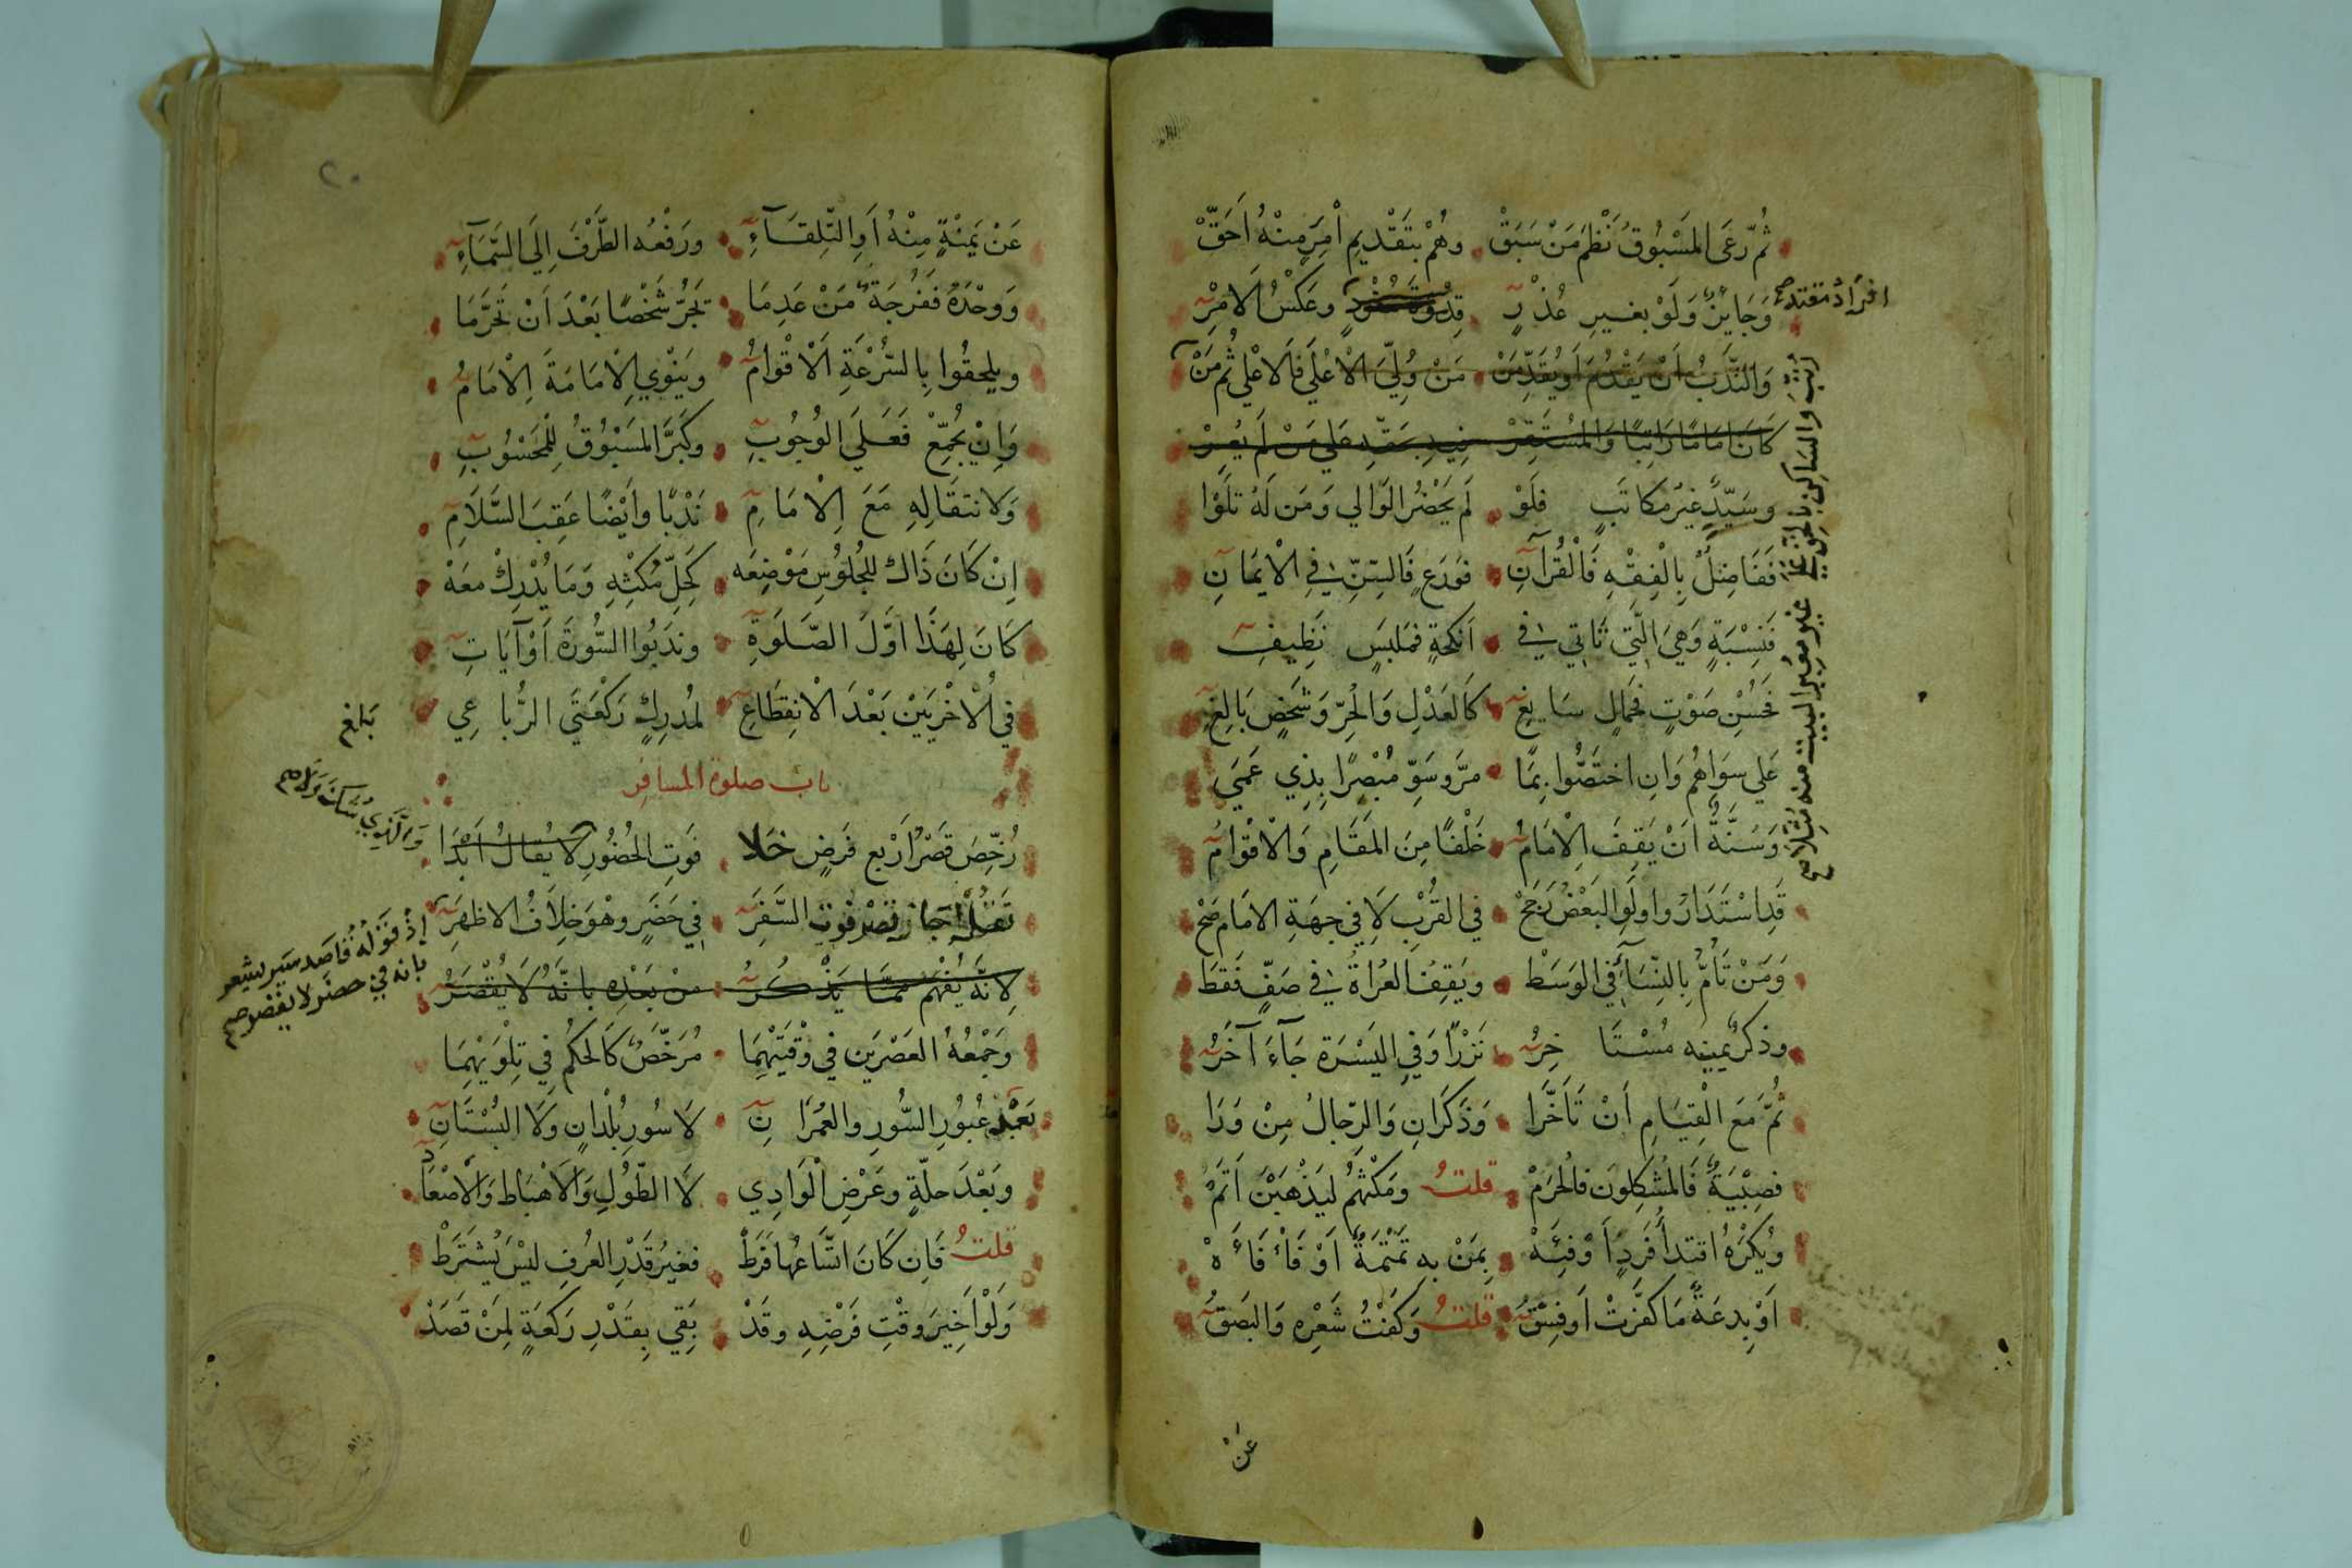 ثُمَّ رَعَى المَسْبُوقُ نَظْمَ مَنْ سَبَقْ وهُمْ بتَقْدِيمِ امْرِءٍ مِنْهُ أَحَقّْ
وَجَايِزٌ وَلَوْ بغيرِ عُذْرِ قِدْوَةُ وعَكْسُ الامْرِ
افرَادُ مقتد صح
وَالنَّدْبُ أَنْ يَقْدُمَ أَوْ يُقَدِّمَنْ مَنْ وُلِّيَ الْأعْلَى فَالاعْلَى ثُم مَنْ
كَانَ امَامًا رَاتِبًا وَالمُسْتَقِرْ فيه بحَقّهِ عَلى مَنْ لَم يُعِرْ
وسَيّدٍ غيْرُ مكَاتَبٍ فلَوْ لَم يَحْضُر الوَالي وَمَن لَهُ تلَوْا
فَفَاضِلٌ بِالْفِقْهِ فَالْقُرْآنِ فوَرَعٍ فَالسِّنِّ في الْايمَانِ
فَنِسْبَةٍ وَهيَ الَّتي تَاتي في انكحَةٍ فمَلبَسٍ نَظِيفِ
فَحُسْنِ صَوْتٍ فجَمالٍ سَايغِ كَالعَدْلِ وَالحُرّ وَشخصٍ بَالِغِ
عَلى سِوَاهُم وَانِ اختَصُّوا بِمَا مرَّ وسَوِّ مُبْصِرًا بِذِي عَمَى
وَسُنَّةٌ انْ يَقِفَ الْامَامُ خَلْفًا مِنَ المَقَامِ وَالْاقْوَامُ
قَدِ اسْتَدَارُوا ولَوِ البَعْضُ رَجَحْ في القُرْبِ لَا في جِهَةِ الامَامِ صَحّْ
وَمَنْ تَأُمُّ بِالنِّسَآءِ في الوَسَطْ ويَقِفُ العُرَاةُ في صَفٍّ فَقَطْ
وذكرٌ يمينه مُسْتَاخِرُ نَزْرًا وَفي اليَسْرَةِ جَآءَ آخَرُ
ثُمَّ مَعَ الْقِيَامِ أَنْ تَأَخَّرَا وَذَكَرَانِ وَالرِّجَالُ مِنْ وَرَا
فصِبْيَةٌ فَالمُشكِلُونَ فالحُرَمْ قلتُ ومَكْثُهُمْ ليَذْهَبْنَ اتَمّْ
ويُكْرَهُ اقتدَا فَردٍ اَوْ فِئَهْ بِمَنْ بهِ تَمْتَمَةٌ اَوْ فَأْفَأَهْ
اَوْ بِدعَةٌ مَا كفَّرَتْ اَو فِسْقُ قلتُ وَكَفْتُ شَعْرِهِ وَالبَصْقُ
عَنْ
٢٠
عَنْ يَمْنَةٍ مِنْهُ اَوِ التِّلقَآءِ ورَفْعُه الطَّرْفَ اِلَى السَّمَآءِ
وَوحْدَهُ ففُرْجَةٌ مَنْ عَدِمَا تَجُرُّ شَخْصًا بَعْدَ اَنْ تَحَرَّمَا
ويلحقُوا بِالسُّرْعَةِ الْاقْوَامُ ويَنْوِي الْاِمَامَةَ الْاِمَامُ
وَاِنْ يُجَمِّعْ فَعَلَى الوُجُوبِ وكَبَّرَ المَسْبُوقُ لِلْمَحْسُوبِ
وَلانتقَالِهِ مَعَ الْاِمَامِ نَدْبًا وايْضًا عَقِبَ السَّلَامِ
اِنْ كَانَ ذَاك للجُلُوسِ مَوْضِعَه كَحِلِّ مُكْثِهِ وَمَا يُدْرِكْ مَعَهْ
كَانَ لِهَذَا اَوَّلَ الصَّلَوةِ وندَبُوا السُّورَةَ اَوْ آيَاتِ
في الْاخْرَيَيْن بَعْدَ الْانقِطَاعِ لمُدرِكٍ رَكْعَتَي الرُّبَاعِي
بَلَغ
باب صلوة المسافر
رُخِّصَ قَصْرُ أَرْبعِ فَرضٍ خَلا فَوتِ الحُضُورِ لَا يُقالُ اَبْدَا
جَاز قصْرُ فَوْتِ السَّفَرِ في حَضَرٍ وهْوَ خِلَافُ الاظهَرِ
لِانَّهُ يُفْهَمُ ممَّا يَذْكُرُ مِنْ بَعْدِه بِانَّهُ لَا يُقْصَرُ
إذْ قَوْلُهُ قَاصِد سَيرٍ يشعر
بانه في حضَر لا يقصر صح
وَجَمْعُهُ العَصْرَين في وقْتَيْهِمَا مُرَخَّصٌ كَالحُكْمِ في تِلْوَيْهِمَا
بَعْدَ عُبُورِ السُّورِ والعُمْرَانِ لَا سُورِ بُلْدَانٍ وَلَا البُسْتَانِ
وبَعْدَ حلّةٍ وعَرْضِ الْوَادِي لَا الطُّولِ وَالْاهْبَاط وَالْاصْعَادِ
قلتُ فَاِن كَانَ اتّسَاعُهَا فَرَطْ فغيرُ قَدْرِ العُرفِ ليْسَ يُشتَرَطْ
وَلَوْ اَخِيرَ وقْتِ فَرْضِهِ وقَدْ بَقي بِقَدْرِ رَكعَةٍ لِمَنْ قَصَدْ